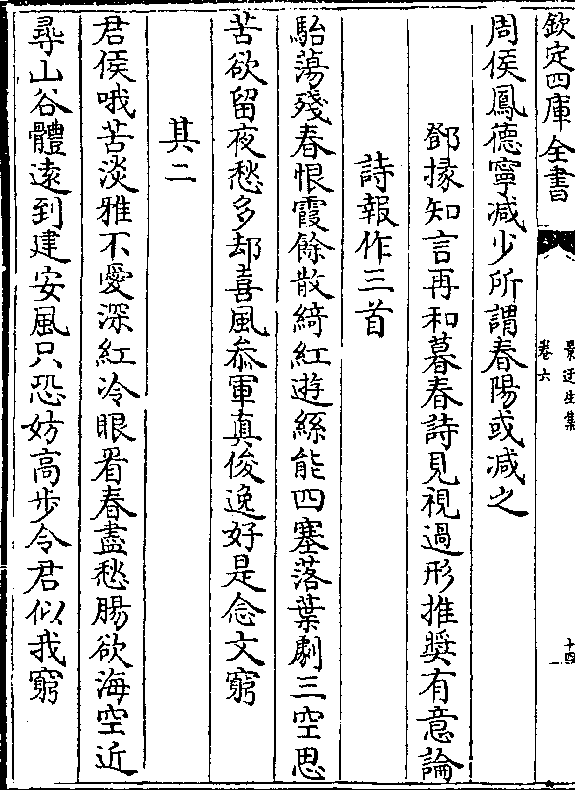 欽定四庫全書
景迂生集
卷六
十四
周侯鳳德寧减少所謂春陽或减之
鄧掾知言再和暮春詩見視過形推奬有意論
詩報作三首
駘蕩殘春恨霞餘散綺紅遊絲能四塞落葉劇三空思
苦欲留夜愁多却喜風叅軍真俊逸好是念文窮
其二
君侯哦苦淡雅不愛深紅冷眼看春盡愁腸欲海空近
尋山谷體逺到建安風只恐妨高步令君似我窮